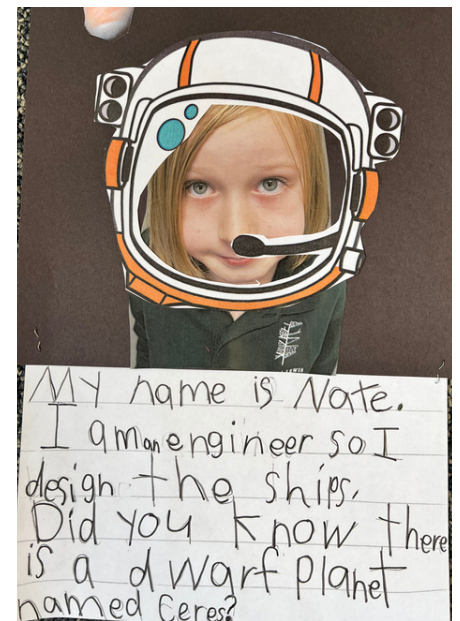 My name is Nate.
I am an engineer so I
design the ships.
Did you know there
is a dwarf planet
named Ceres?